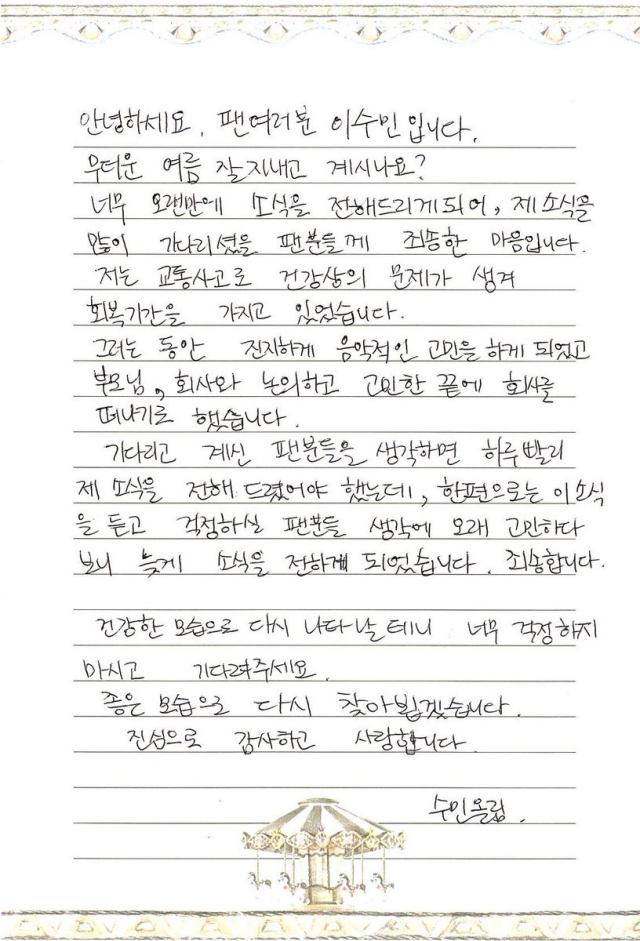 안녕하세요, 팬여러분 이수민입니다.
무더운 여름 잘지내고 계시나요?
너무 오랜만에 소식을 전해드리게되어, 제소식을
많이 기다리셨을 팬분들께 죄송한 마음입니다.
저는 교통사고로 건강상의 문제가 생겨
회복기간을 가지고 있었습니다.
그러는 동안 진지하게 음악적인 고민을하게 되었고
부모님, 회사와 논의하고 고민한 끝에 회사를
떠나기로 했습니다.
기다리고 계신 팬분들을 생각하면 하루빨리
제 소식을 전해 드렸어야 했는데, 한편으로는 이소식
을 듣고 걱정하실 팬분들 생각에 오래 고민하다
보니 늦게 소식을 전하게 되었습니다. 죄송합니다.
건강한 모습으로 다시 나타날테니 너무 걱정하지
마시고 기다려주세요.
좋은 모습으로 다시 찾아뵙겠습니다.
진심으로 감사하고 사랑합니다.
수민올림.